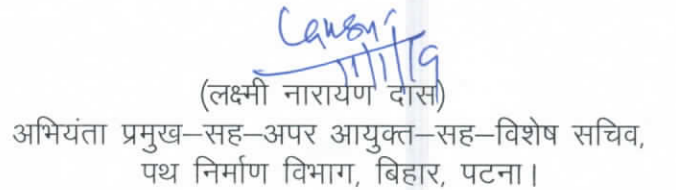 11/1/19
(लक्ष्मी नारायण दास)
अभियंता प्रमुख–सह–अपर आयुक्त–सह–विशेष सचिव,
पथ निर्माण विभाग, बिहार, पटना।